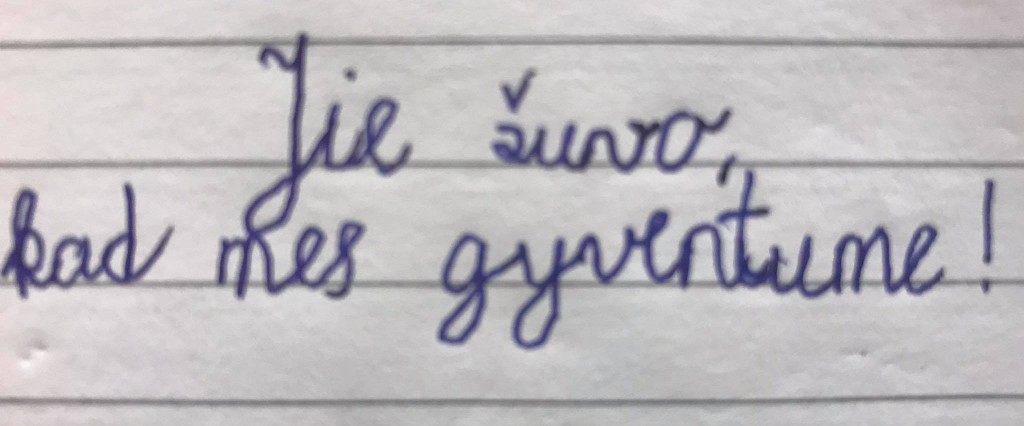 Jie žuvo,
kad mes gyventume!